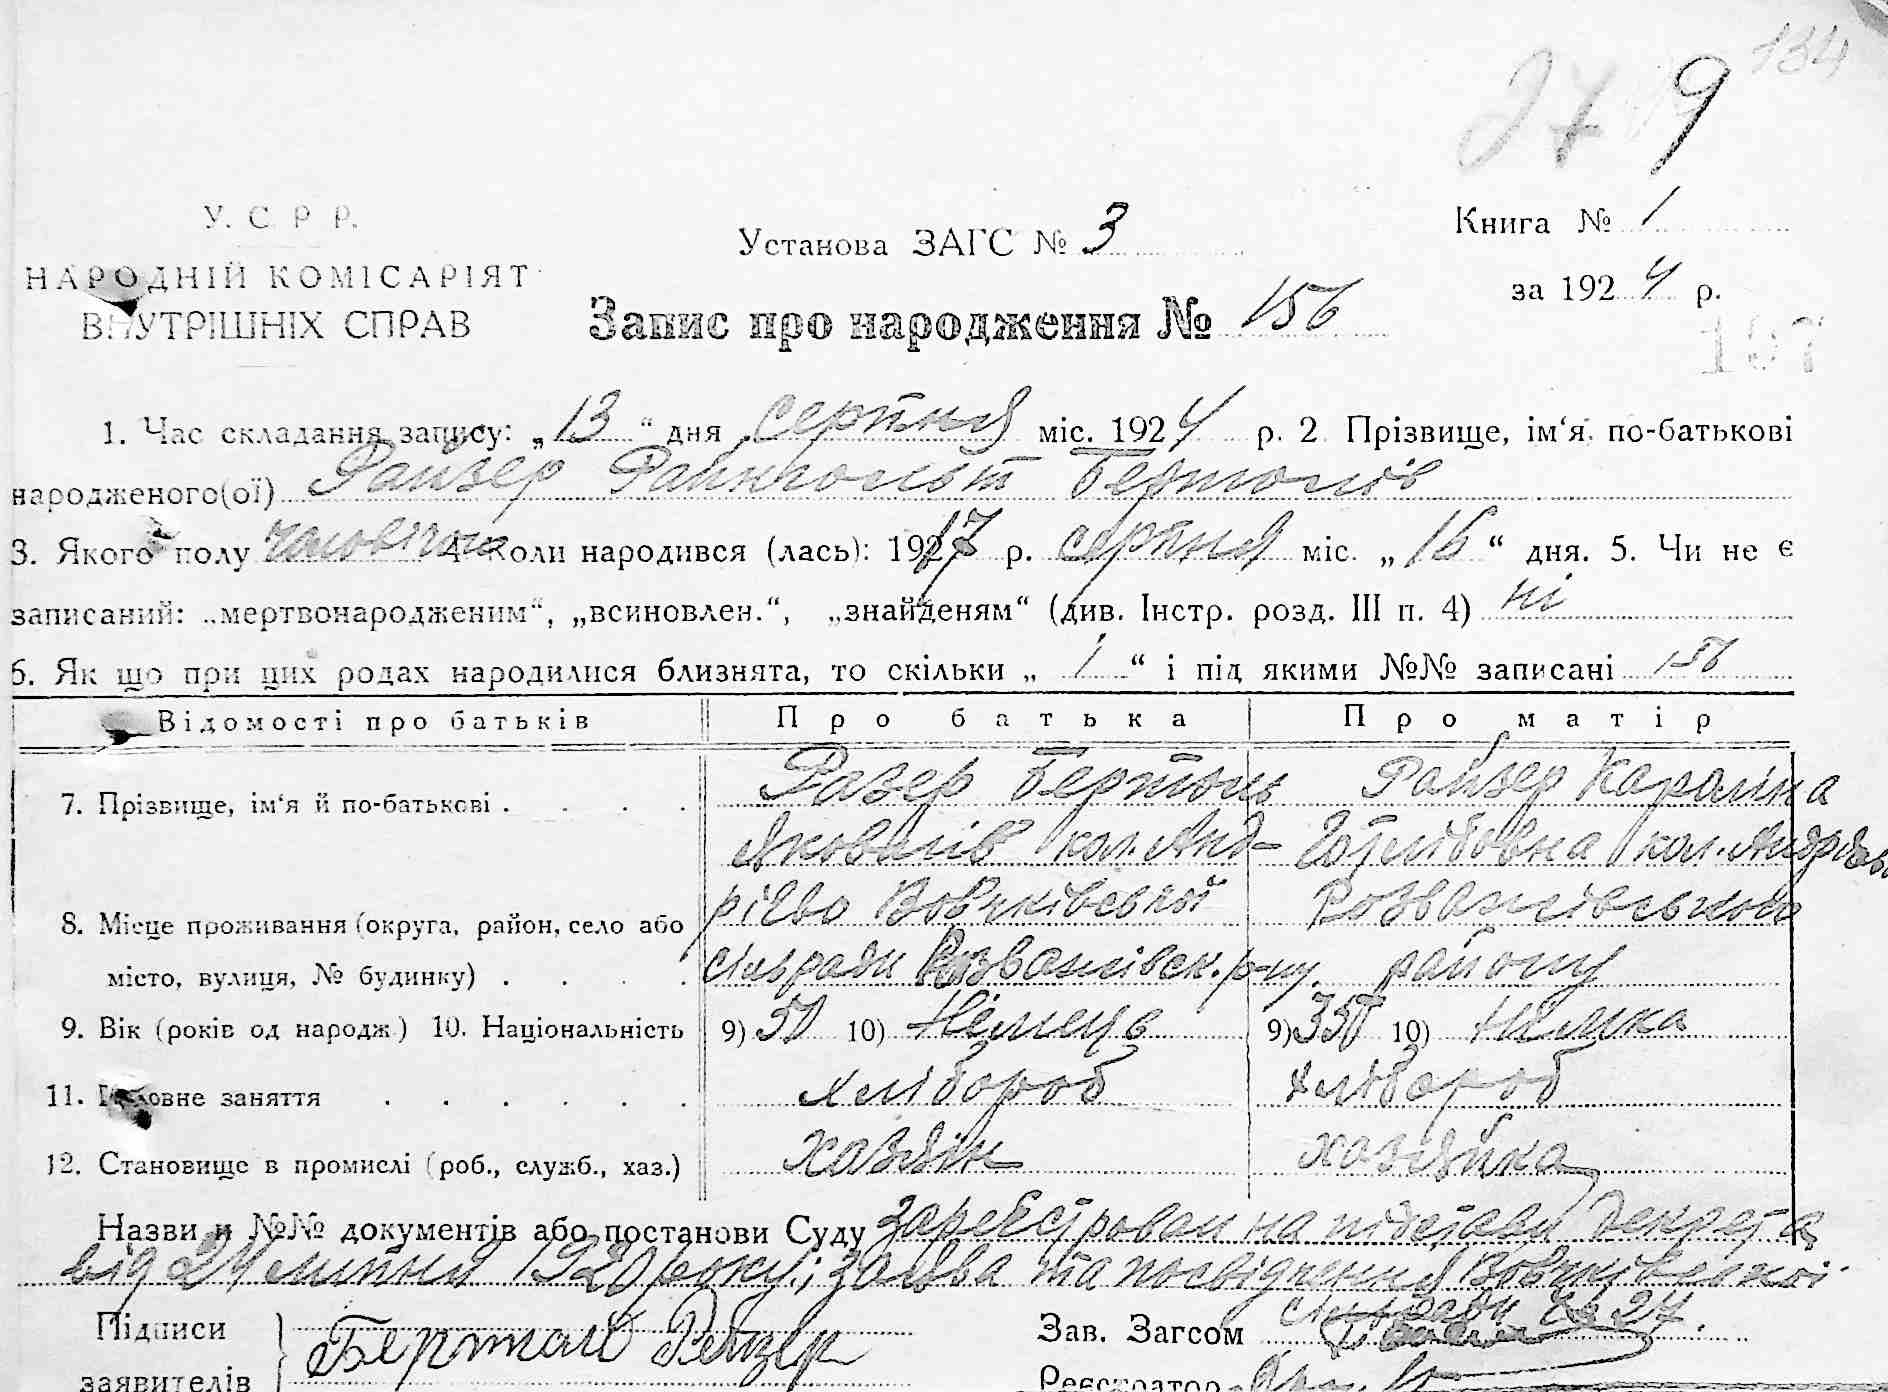 134
27 9
У. С. Р. Р.
НАРОДНІЙ КОМІСАРІЯТ
ВНУТРІШНІХ СПРАВ
Установа ЗАГС № 3
Книга № 1
за 1924 р.
Запис про народження № 156
107
1. Час складання запису: „13“ дня серпня міс. 1924 р. 2 Прізвище, ім‘я, по-батькові
народженого(ої) Райзер Райнгольт Бертолів
3. Якого полу чоловічого 4. Коли народився (лась): 1917 р. серпня міс. „16“ дня. 5. Чи не є
записаний: „мертвонародженим“, „всиновлен.“, „знайденям“ (див. Інстр. розд. III п. 4) ні
6. Як що при цих родах народилися близнята, то скільки „1“ і під якими №№ записані 156
Відомості про батьків Про батька Про матір
7. Прізвище, ім‘я й по-батькові . . . . Разер Бертоль Райзер Кароліна
Яковлів кол. Анд- Готлібовна кол. Андріївка
8. Місце проживання (округа, район, село або рієво Вовчківської Розважівського
місто, вулиця, № будинку) . . . . сільради Розважівськ. р-ну. району
9. Вік (років од народж.) 10. Національність 9) 50 10) Німець 9) 35 10) Німка
11. Головне заняття . . . . . . хлібороб хлібороб
12. Становище в промислі (роб., служб., хаз.) хазяїн хазяйка
Назви и №№ документів або постанови Суду зареєстрован на підставі декрета
від 24 липня 1920 року; заява та посвідчення Вовчківської
сільради № 27.
Підписи Бертолй Рейзер Зав. Загсом
заявителів Реєстратор